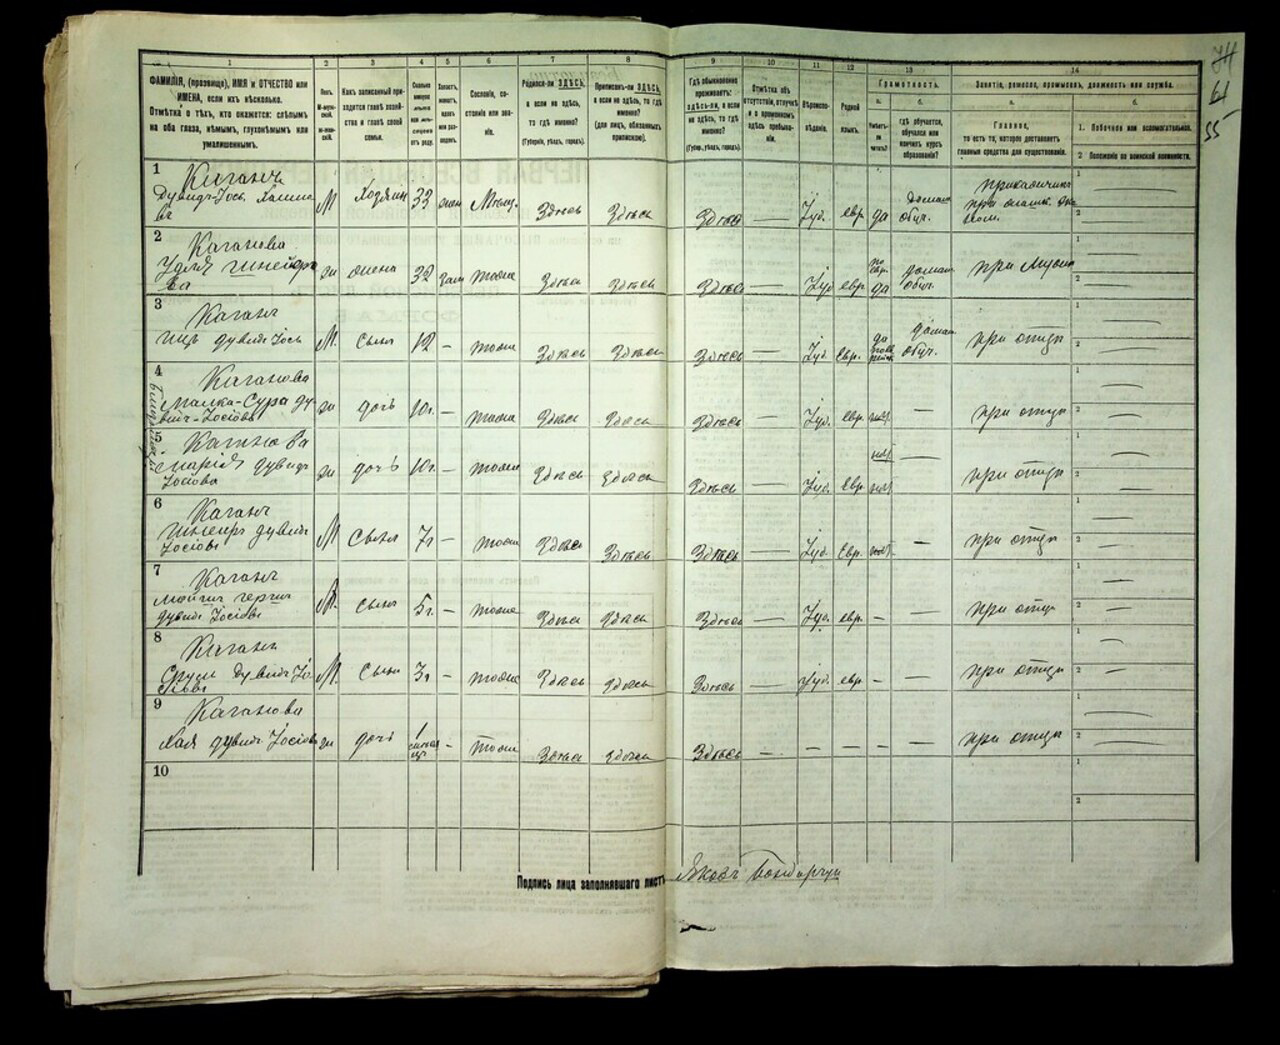 74
61
55
1 2 3 4 5 6 7 8 9 10 11 12 13 14
ФАМИЛІЯ, (прозвище), ИМЯ и ОТЧЕСТВО или
ИМЕНА, если ихъ нѣсколько.
Отмѣтка о тѣхъ, кто окажется: слѣпымъ
на оба глаза, нѣмымъ, глухонѣмымъ или
умалишеннымъ.
Полъ.
М-мужской.
Ж-женскій.
Какъ записанный приходится главѣ хозяйства и главѣ своей семьи.
Сколько минуло лѣтъ или мѣсяцевъ отъ роду.
Холостъ, женатъ, вдовъ или разведенъ.
Сословіе, состояніе или званіе.
Родился-ли ЗДѢСЬ,
а если не здѣсь,
то гдѣ именно?
(Губернія, уѣздъ, городъ).
Приписанъ-ли ЗДѢСЬ,
а если не здѣсь, то гдѣ
именно?
(для лицъ, обязанныхъ
припискою).
Гдѣ обыкновенно
проживаетъ:
здѣсь-ли, а если
не здѣсь, то гдѣ
именно?
(Губерн., уѣздъ, городъ).
Отмѣтка объ
отсутствіи, отлучкѣ
и о временномъ
здѣсь пребываніи.
Вѣроисповѣданіе.
Родной
языкъ.
Грамотность.
а. б.
Умѣетъ-ли читать?
гдѣ обучается,
обучался или
кончилъ курсъ
образованія?
Занятіе, ремесло, промыселъ, должность или служба.
а. б.
Главное,
то есть то, которое доставляетъ
главныя средства для существованія.
1. Побочное или вспомогательное.
2 Положеніе по воинской повинности.
1 Каганъ
Дувидъ-Іось
М Хозяинъ 33 жен Мѣщ. Здѣсь Здѣсь Здѣсь — Іуд. евр да домаш обуч. прикащикъ
2 Каганова
жена 32 зам тоже Здѣсь Здѣсь Здѣсь — Іуд евр да домаш обуч. при мужѣ
3 Каганъ
дувидъ Іось
М. сынъ 12 — тоже Здѣсь Здѣсь Здѣсь — Іуд. Евр. да домаш обуч. при отцѣ
4 Каганова
Малка-Сура ду
видъ-Іосіова
дочь 10г. — тоже Здѣсь Здѣсь Здѣсь — Іуд. евр нѣт — при отцѣ
5 Каганова
Марія дувидъ
Іосіова
дочь 10г. — тоже Здѣсь Здѣсь Здѣсь — Іуд. Евр нѣт — при отцѣ
6 Каганъ
дувидъ
Іосіовъ
М сынъ 7л — тоже Здѣсь Здѣсь Здѣсь — Іуд. Евр. нѣт — при отцѣ
7 Каганъ
дувидъ Іосіовъ
М. сынъ 5г. — тоже Здѣсь Здѣсь Здѣсь — Іуд. евр. — при отцѣ
8 Каганъ
Сруль Дувидъ Іо
сіовъ
М. сынъ 3г — тоже Здѣсь Здѣсь Здѣсь — Іуд. евр — — при отцѣ
9 Каганова
Хая дувидъ Іосіова
дочь 1 — тоже Здѣсь Здѣсь Здѣсь — — — — — при отцѣ
10
Подпись лица заполнявшаго листъ Яковъ Бондарчук